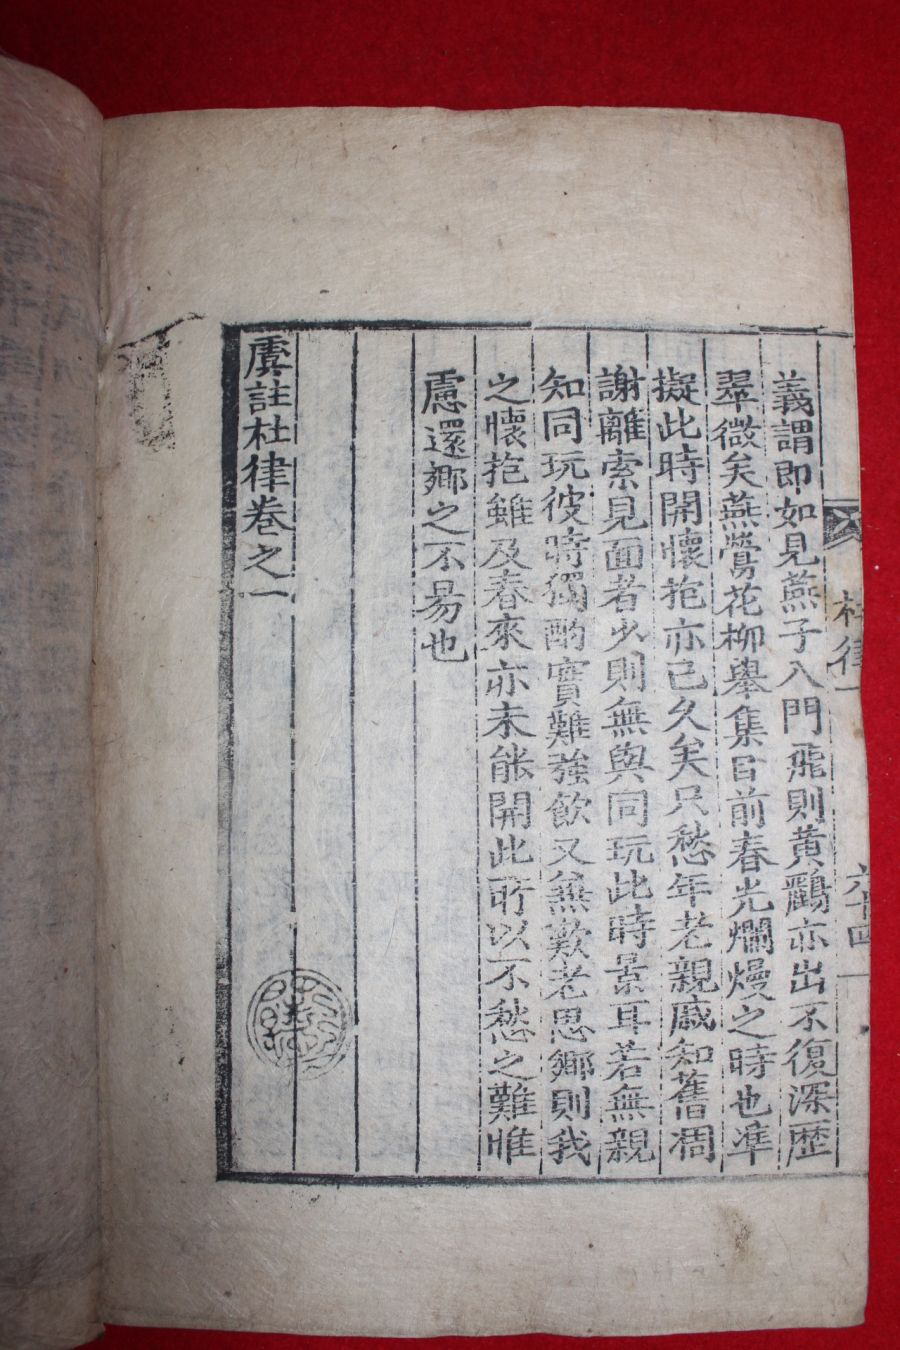 杜律一
六十四
義謂即如見燕子入門飛則黄鸝亦出不復深歷
翠微矣燕鶯花柳舉集目前春光爛熳之時也準
擬此時開懷抱亦已久矣只愁年老親戚知舊凋
謝離索見面者少則無與同玩此時景耳若無親
知同玩彼時獨酌實難強飲又無歎老思鄉則我
之懷抱雖及春來亦未能開此所以不愁之難惟
慮還鄉之不易也
虞註杜律卷之一